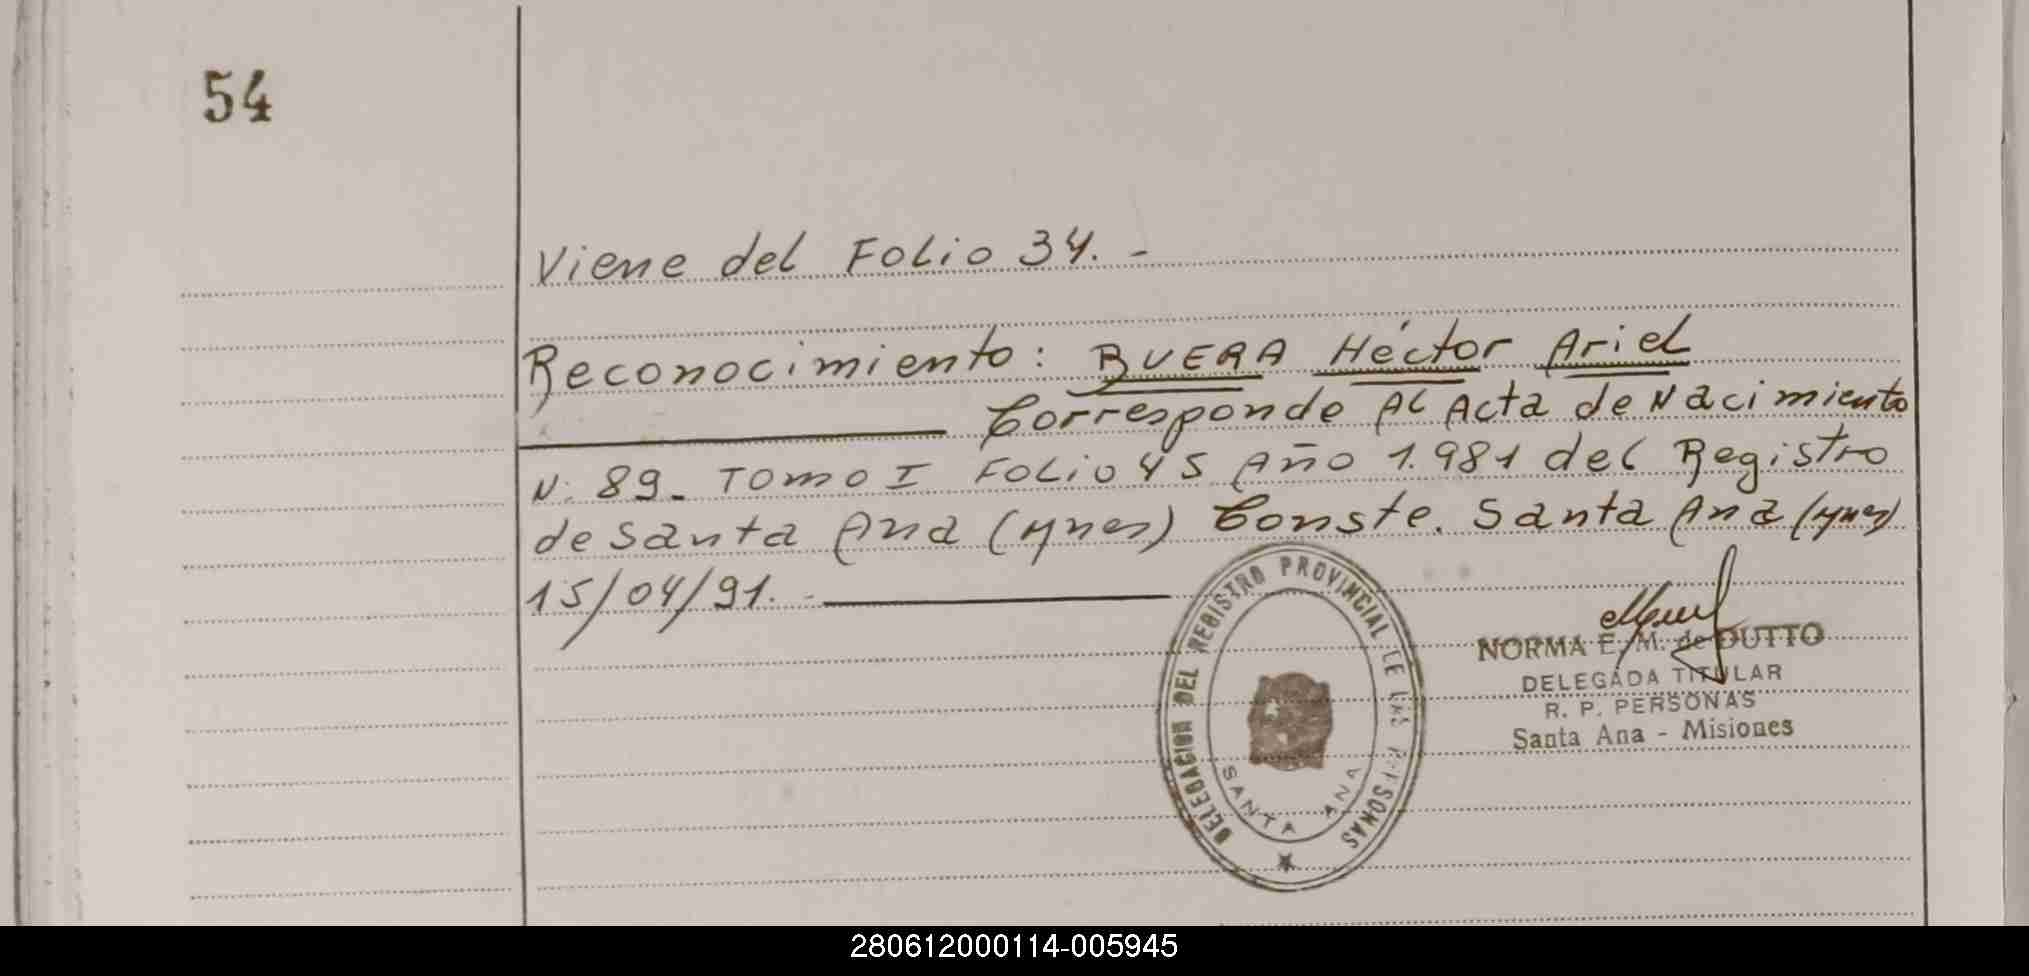 54
Viene del Folio 34. -
Reconocimiento: BUERA Héctor Ariel
Corresponde Al Acta de Nacimiento
N. 89_ TOMO I Folio 45 Año 1.981 del Registro
de Santa Ana (Mnes) Conste. Santa Ana (Mnes)
15/04/91. -
DELEGACION DEL REGISTRO PROVINCIAL DE LAS PERSONAS
SANTA ANA
NORMA E. M. de DUTTO
DELEGADA TITULAR
R. P. PERSONAS
Santa Ana - Misiones
280612000114-005945